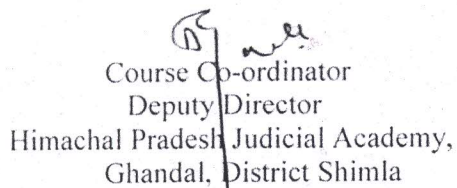 Course Co-ordinator
Deputy Director
Himachal Pradesh Judicial Academy,
Ghandal, District Shimla